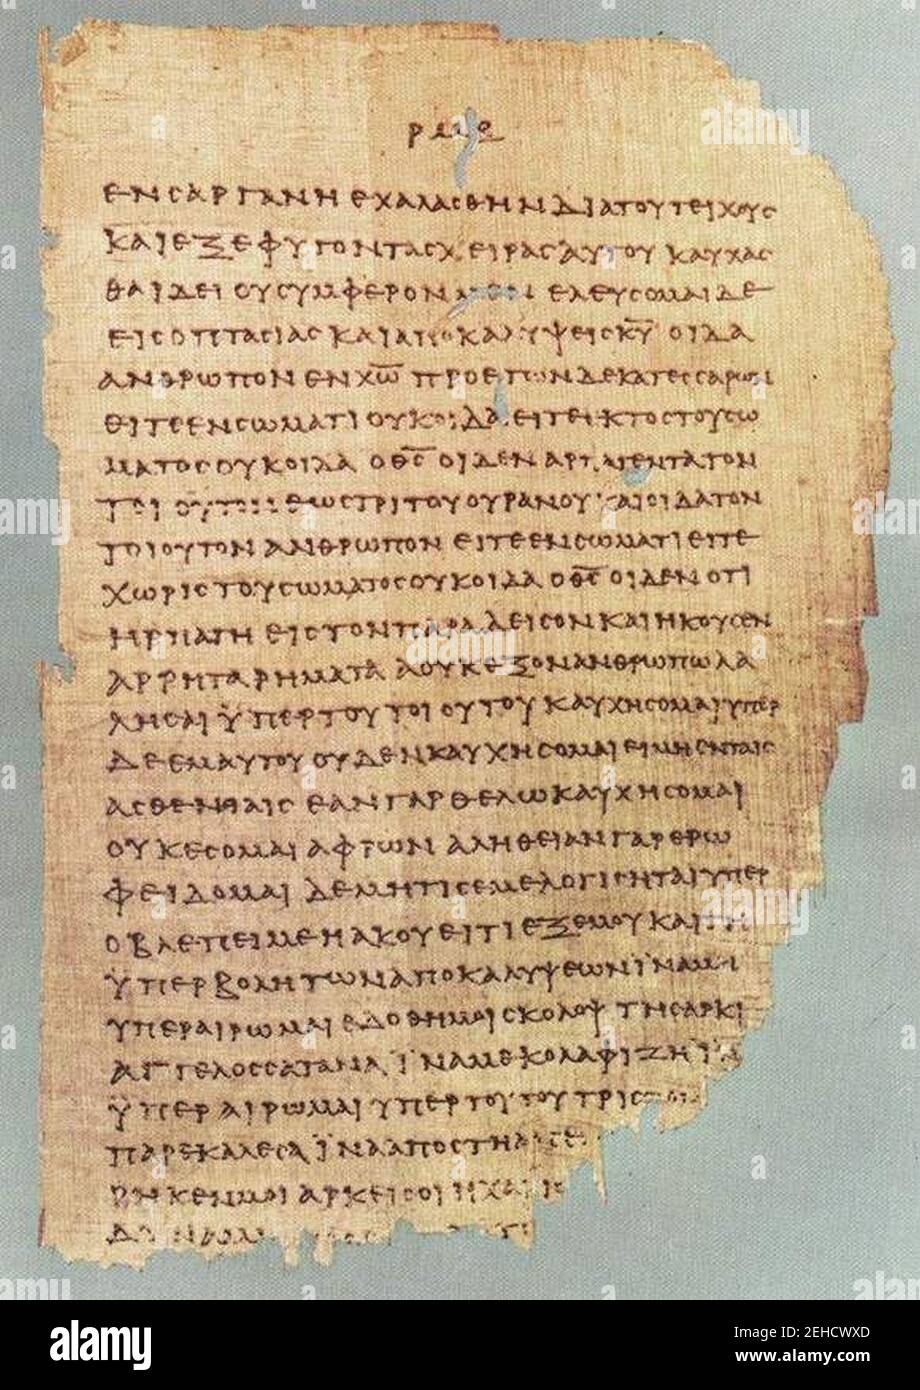 ΕΝ ΣΑΡΓΑΝΗ ΕΧΑΛΑΣΘΗΝ ΔΙΑ ΤΟΥ ΤΕΙΧΟΥΣ
ΚΑΙ ΕΞΕΦΥΓΟΝ ΤΑΣ ΧΕΙΡΑΣ ΑΥΤΟΥ ΚΑΥΧΑΣ
ΘΑΙ ΔΕΙ ΟΥ ΣΥΜΦΕΡΟΝ ΜΕΝ ΕΛΕΥΣΟΜΑΙ ΔΕ
ΕΙΣ ΟΠΤΑΣΙΑΣ ΚΑΙ ΑΠΟΚΑΛΥΨΕΙΣ Κ̅Υ̅ ΟΙΔΑ
ΑΝΘΡΩΠΟΝ ΕΝ Χ̅Ω̅ ΠΡΟ ΕΤΩΝ ΔΕΚΑΤΕΣΣΑΡΩΝ
ΕΙΤΕ ΕΝ ΣΩΜΑΤΙ ΟΥΚ ΟΙΔΑ ΕΙΤΕ ΕΚΤΟΣ ΤΟΥ ΣΩ
ΜΑΤΟΣ ΟΥΚ ΟΙΔΑ Ο Θ̅Σ̅ ΟΙΔΕΝ ΑΡΠΑΓΕΝΤΑ ΤΟΝ
ΤΟΙΟΥΤΟΝ ΕΩΣ ΤΡΙΤΟΥ ΟΥΡΑΝΟΥ ΚΑΙ ΟΙΔΑ ΤΟΝ
ΤΟΙΟΥΤΟΝ ΑΝΘΡΩΠΟΝ ΕΙΤΕ ΕΝ ΣΩΜΑΤΙ ΕΙΤΕ
ΧΩΡΙΣ ΤΟΥ ΣΩΜΑΤΟΣ ΟΥΚ ΟΙΔΑ Ο Θ̅Σ̅ ΟΙΔΕΝ ΟΤΙ
ΗΡΠΑΓΗ ΕΙΣ ΤΟΝ ΠΑΡΑΔΕΙΣΟΝ ΚΑΙ ΗΚΟΥΣΕΝ
ΑΡΡΗΤΑ ΡΗΜΑΤΑ Α ΟΥΚ ΕΞΟΝ ΑΝΘΡΩΠΩ ΛΑ
ΛΗΣΑΙ ΫΠΕΡ ΤΟΥ ΤΟΙΟΥΤΟΥ ΚΑΥΧΗΣΟΜΑΙ ΥΠΕΡ
ΔΕ ΕΜΑΥΤΟΥ ΟΥΔΕΝ ΚΑΥΧΗΣΟΜΑΙ ΕΙ ΜΗ ΕΝ ΤΑΙΣ
ΑΣΘΕΝΕΙΑΙΣ ΕΑΝ ΓΑΡ ΘΕΛΩ ΚΑΥΧΗΣΟΜΑΙ
ΟΥΚ ΕΣΟΜΑΙ ΑΦΡΩΝ ΑΛΗΘΕΙΑΝ ΓΑΡ ΕΡΩ
ΦΕΙΔΟΜΑΙ ΔΕ ΜΗ ΤΙΣ ΕΜΕ ΛΟΓΙΣΗΤΑΙ ΥΠΕΡ
Ο ΒΛΕΠΕΙ ΜΕ Η ΑΚΟΥΕΙ ΤΙ ΕΞ ΕΜΟΥ ΚΑΙ ΤΗ
ΫΠΕΡΒΟΛΗ ΤΩΝ ΑΠΟΚΑΛΥΨΕΩΝ ΙΝΑ ΜΗ
ΥΠΕΡΑΙΡΩΜΑΙ ΕΔΟΘΗ ΜΟΙ ΣΚΟΛΟΨ ΤΗ ΣΑΡΚΙ
ΑΓΓΕΛΟΣ ΣΑΤΑΝΑ ΪΝΑ ΜΕ ΚΟΛΑΦΙΖΗ ΪΝΑ
ΫΠΕΡΑΙΡΩΜΑΙ ΥΠΕΡ ΤΟΥΤΟΥ ΤΡΙΣ ΤΟΝ
ΠΑΡΕΚΑΛΕΣΑ ΪΝΑ ΑΠΟΣΤΗ ΑΠ
ΡΗΚΕΝ ΜΟΙ ΑΡΚΕΙ ΣΟΙ Η ΧΑΡΙΣ
alamy
Image ID: 2EHCWXD
www.alamy.com